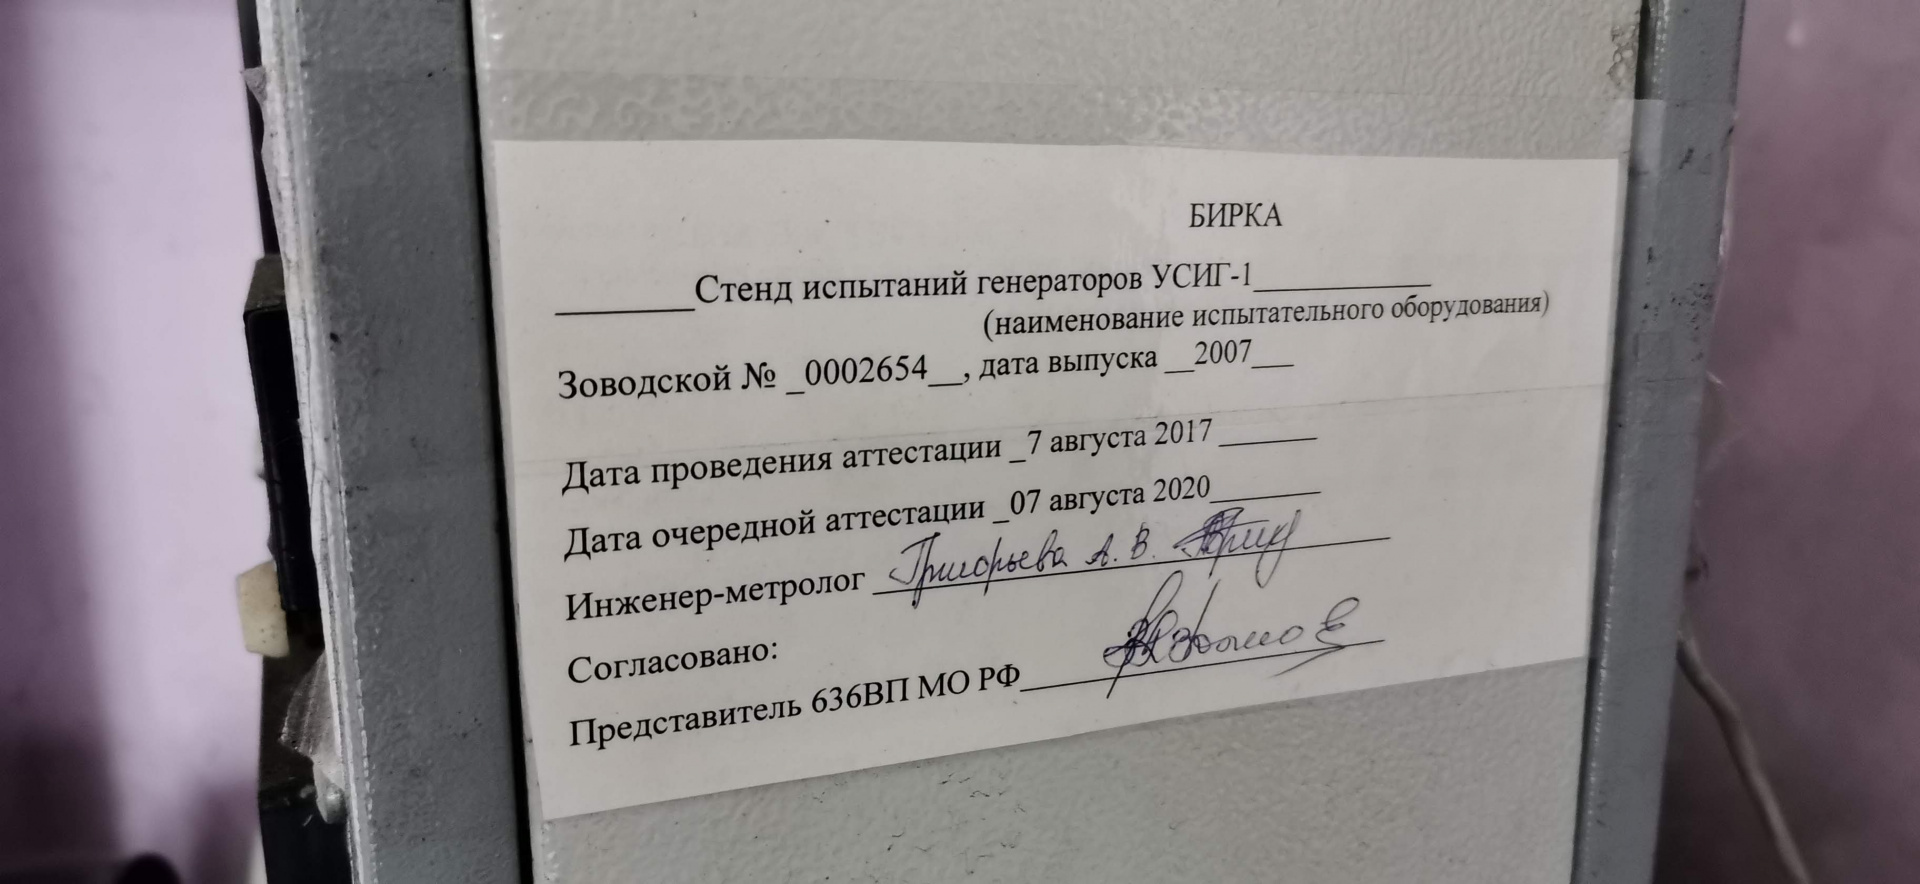 БИРКА
_______Стенд испытаний генераторов УСИГ-1_________
(наименование испытательного оборудования)
Зоводской № _0002654__, дата выпуска __2007___
Дата проведения аттестации _7 августа 2017 ______
Дата очередной аттестации _07 августа 2020_______
Инженер-метролог Григорьева А. В.
Согласовано:
Представитель 636ВП МО РФ